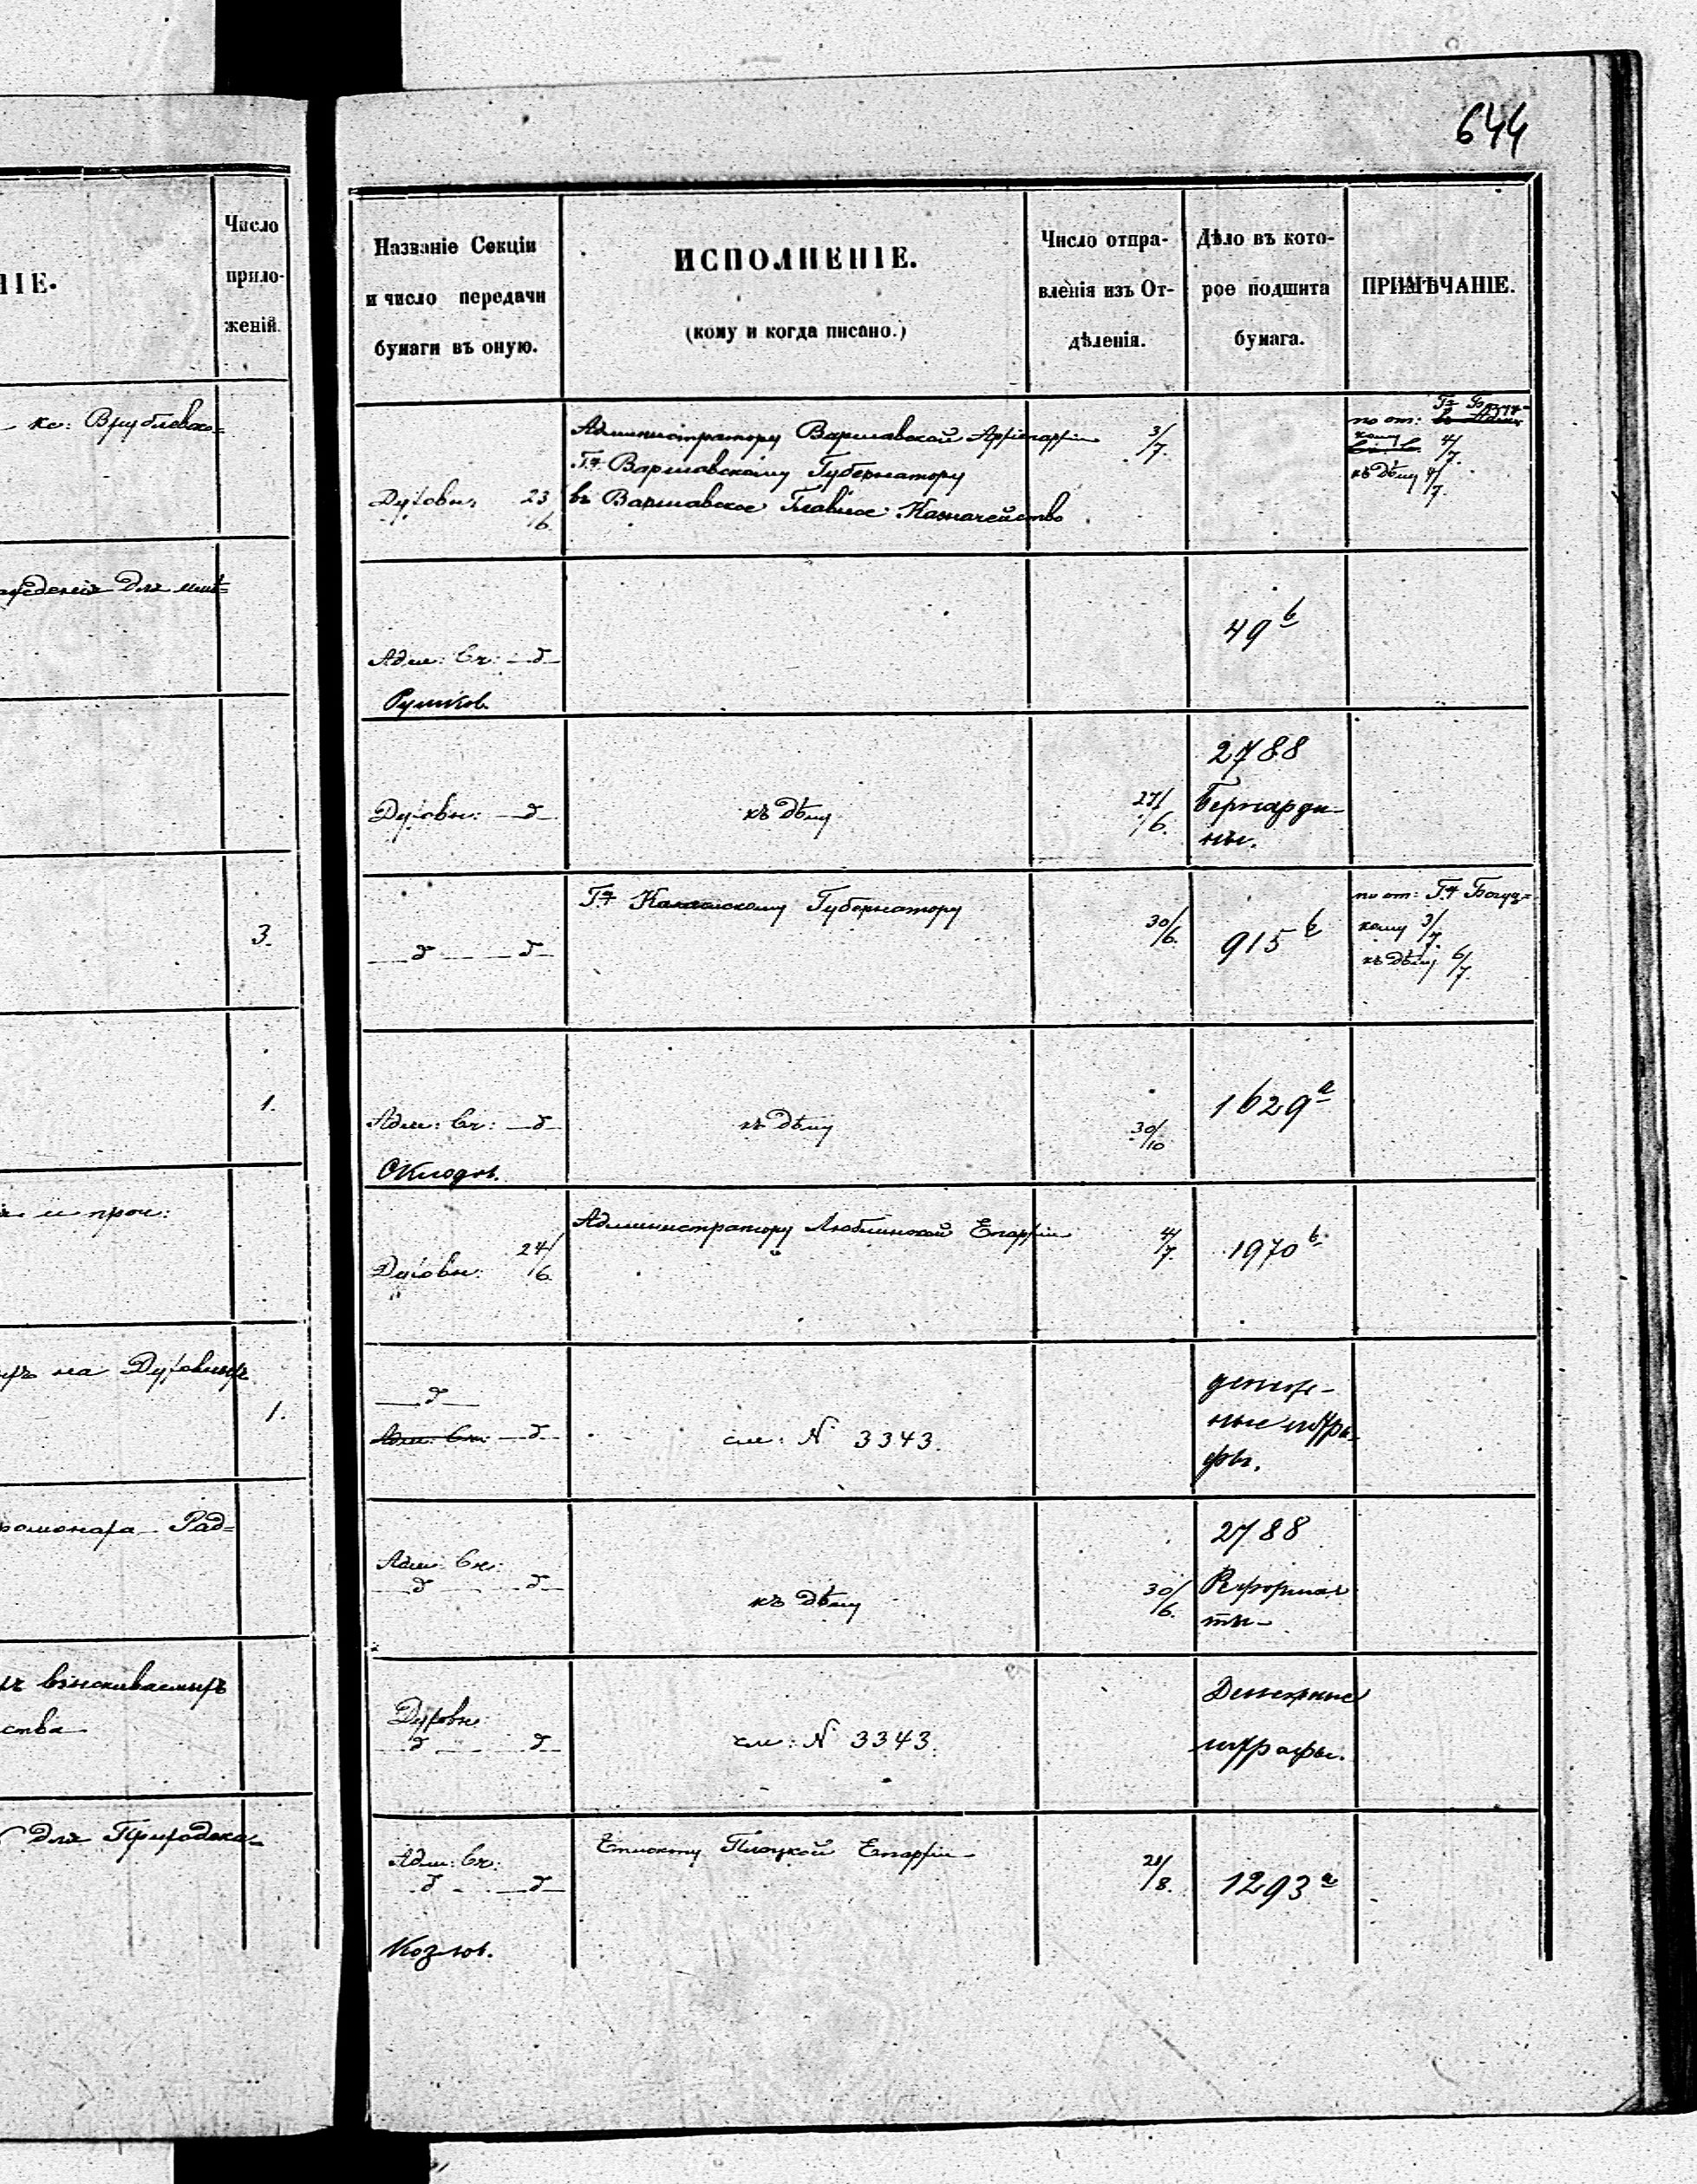 644
НІЕ.
Число
прило-
женій.
кс: Врублевско=
для
3.
1.
и проч:
на Духовныхъ
1.
Рад=
взыскиваемыхъ
ства
для
Названіе Секціи
и число передачи
бумаги въ оную.
ИСПОЛНЕНІЕ.
(кому и когда писано.)
Число отпра-
вленія изъ От-
дѣленія.
Дѣло въ кото-
рое подшита
бумага.
ПРИМѢЧАНІЕ.
Духовн: 23/6.
Администратору Варшавской Архіепархіи
Гну Варшавскому Губернатору
въ Варшавское Главное Казначейство
3/7.
по от:
кому 4/7.
къ дѣлу 4/7.
Адм: Сч: — д —
49 b
Духовн: — д —
къ дѣлу
27/6.
2788
Бернарди-
ны.
— д — — д —
Гну Калишскому Губернатору
30/6.
915 b
по от: Гну
кому 3/7.
къ дѣлу 6/7.
Адм: Сч: — д —
Склодов.
къ дѣлу
30/10
1629 a
Духовн: 24/6.
Администратору Люблинской Епархіи
4/7.
1970 b
— д —
Адм: Сч: — д —
см: № 3343.
денеж-
ные штра-
фы.
Адм: Сч:
— д — — д —
къ дѣлу
30/6.
2788
Реформа-
ты
Духовн:
— д — — д —
см: № 3343.
Денежные
штрафы.
Адм: Сч:
— д — — д —
Козлов.
Епископу Плоцкой Епархіи
21/8.
1293 a